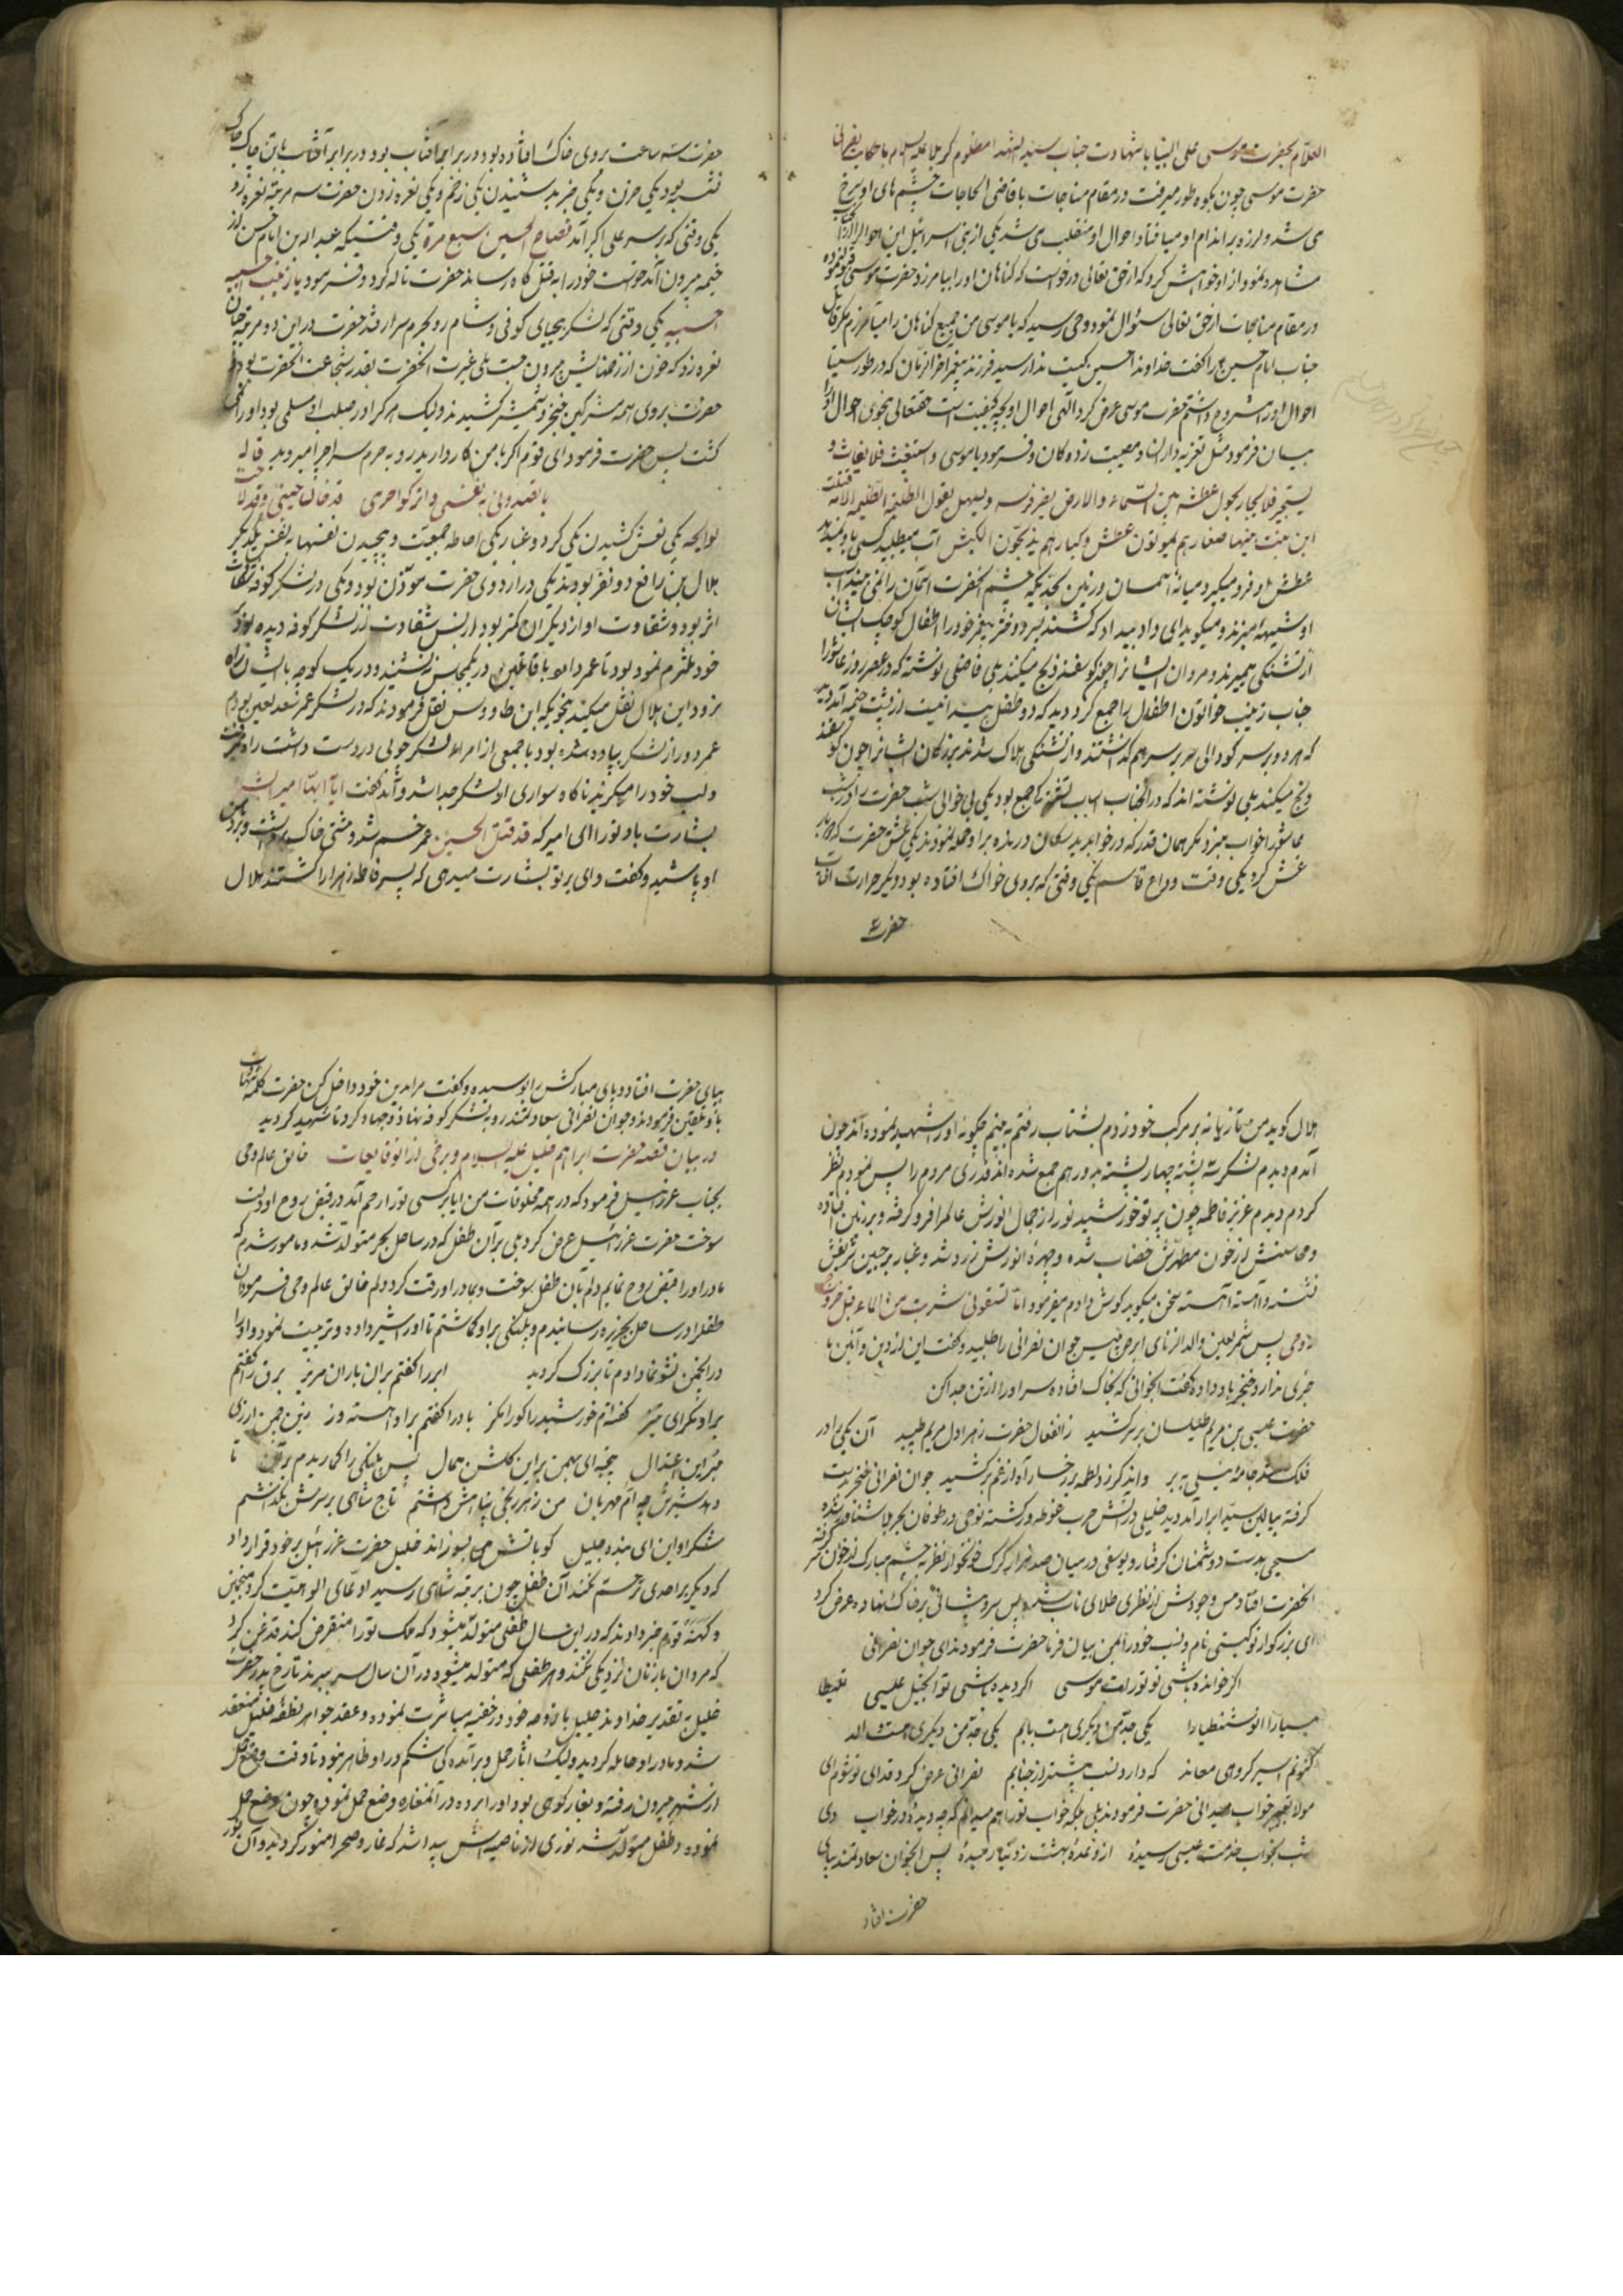 العلّام بحضرت موسی علی نبینا با شهادت جناب سید الشهدا مظلوم کربلا علیه السلام با حکایت نصرانی
حضرت موسی چون بکوه طور میرفت در مقام مناجات با قاضی الحاجات چشم های او سرخ
می شد و لرزه بر اندام او میافتاد و احوال او منقلب می شد یکی از بنی اسرائیل این احوال را از آنجناب
مشاهده نمود از او خواهش کرد که از حق تعالی درخواست که گناهان او را بیامرزد حضرت موسی قبول نموده
در مقام مناجات از حق تعالی سئوال نمود وحی رسید که یا موسی من جمیع گناهان را میآمرزم مگر قاتل
جناب امام حسین را گفت خداوندا حسین کیست ندا رسید فرزند پیغمبر آخر الزمان که در طور سینا
احوال او را مشروح داشتم حضرت موسی عرض کرد الهی احوال او بچه کیفیت است حقتعالی بنحوی احوال او را
بیان فرمود مثل تعزیه داران و مصیبت زده کان و فرمود یا موسی و استغیث فلا یغاث و
یستجیر فلا یجار یحول عطشه بین السماء والارض یفر فرسه و یصهل یقول الظلیمة الظلیمة الامة قتلت
ابن بنت نبیها صغارهم یموتون عطش و کبارهم یذبحون الکبش آب میطلبد کسی باو نمیدهد
عطش او فرو میگیرد میانهٔ آسمان و زمین بحدیکه چشم آنحضرت آسمان را نمی بیند اسب
او شیهه میزند و میگوید ای داد بیداد که کشتند پسر دختر پیغمبر خود را اطفال کوچک ایشان
از تشنگی بمیرند و مردان ایشانرا چون گوسفند ذبح میکنند بلی فاضلی نوشته که در عصر روز عاشورا
جناب زینب خواتون اطفال را جمع کرد دید که دو طفل پیدا نیست از پشت خیمه آمد دید
که هر دو بر سر گودالی سر بر سر هم گذاشتند و از تشنگی هلاک شدند بزرگان ایشانرا چون گوسفند
ذبح میکنند بلی نوشته اند که در آنجناب اسباب تشنگی جمع بود یکی بی خوابی شب حضرت را در شب
عاشورا خواب نبرد مگر همان قدر که در خواب دید سگان درنده بر او حمله نمودند یکی غش حضرت که دو بار
غش کرد یکی وقت وداع قاسم یکی وقتی که بروی خاک افتاده بود و یکی حرارت آفتاب
حضرت ع
حضرت سه ساعت بروی خاک افتاده بود در برابر آفتاب بود و در برابر آفتاب با تن چاک چاک
تشنه بود یکی حزن و یکی خبر بد شنیدن یکی زخم و یکی نعره زدن حضرت سه مرتبه نعره زد
یکی وقتی که بر سر علی اکبر آمد فصاح الحسین سبع مرة یکی وقتیکه عبد الله بن امام حسن از
خیمه بیرون آمد خواست خود را به قتلگاه رساند حضرت ناله کرد و فرمود یا زینب احبسیه
احبسیه یکی وقتی که لشکر بیحیای کوفی و شام رو بحرم سرا رفتند حضرت در این دو مرتبه چنان
نعره زد که خون از زخمهایش بیرون جست بلی غیرت آنحضرت بقدر شجاعت آنحضرت بود
حضرت بروی همه مشرکین خنجر و شمشیر کشید ند ولیک هر که را در صلب او مسلمی بود او را نمی
کشت پس حضرت فرمود ای قوم اگر با من کار دارید رو به حرم سرا چرا میروید قال
اقصدونی بنفسی و اترکوا حرمی قد حان حینی و قد لاحت
لوایحه یکی نفس کشیدن یکی گرد و غبار یکی احاطه جمعیت و پیچیدن نفسها به نفس یکدیگر
هلال بن رافع دو نفر بودند یکی در اردوی حضرت موذن بود و یکی در لشکر کوفه
اثر بود و شقاوت او از دیگران کمتر بود از بس شقاوت از لشکر کوفه دیده بود
خود ملتزم نمود بود تا عمر دارد با قاتلین در یک مجلس ننشیند و در یک کوچه با ایشان راه
نرود این هلال نقل میکند بنحویکه ابن طاووس نقل فرمودند که در لشکر عمر سعد لعین بودم
عمر دور از لشکر پیاده شده بود با جمعی از امراء لشکر چوبی در دست داشت راه میرفت
و لب خود را میگزید ناگاه سواری از لشکر جدا شد و آمد گفت ایا ایها الامیر البشر
بشارت باد تو را ای امیر که قد قتل الحسین عمر خم شد و مشتی خاک برداشت و بر دهن
او پاشید و گفت وای بر تو بشارت میدی که پسر فاطمه زهرا را کشتند هلال
هلال گوید من تازیانه بر مرکب خود زدم بشتاب رفتم به بینم چگونه او را شهید نموده اند چون
آمدم دیدم لشکر سه پشته چهار پشته بر دور هم جمع شده اند قدری مردم را پس نمودم نظر
کردم دیدم عزیز فاطمه چون پرتو خورشید نور از جمال انورش عالم را فرو گرفته و بر زمین افتاده
و محاسنش از خون مطهرش خضاب شده و چهرهٔ انورش زرد شده و غبار بر جبین شریفش
نشسته و آهسته آهسته سخن میگوید گوش دادم میفرمود اما تسقونی شربة من الماء قبل خروج
روحی پس شمر لعین والد الزنای ابرص پیس جوان نصرانی را طلبید و گفت این از دین و آئین ما
خبری ندارد خنجر باو داده گفت آنجوانی که بخاک افتاده سر او را از تن جدا کن
حضرت عیسی بن مریم طیلسان بر سر کشید ز انفعال حضرت زهرا دل مریم طپید آن یکی را در
فلک شد جامهٔ نیلی به بر واندگر زد لطمه بر رخسار آه از غم بر کشید جوان نصرانی خنجر بدست
گرفته ببالین سید ابرار آمد دید خلیلی در آتش حرب غوطه ور گشته نوحی در طوفان بحر بلا شناور شده
مسیحی بدست دوشمنان گرفتار و یوسفی در میان صد هزار گرگ خونخوار نظر به چشم مبارک در خون گرفته
آنحضرت افتاد مس وجودش از نظری طلای ناب شد پس سر و پیشانی بر خاک نهاد و عرض کرد
ای بزرگوار تو کیستی نام و نسب خود را بمن بیان فرما حضرت فرمودند ای جوان نصرانی
اگر خوانده باشی تو تورات موسی اگر دیده باشی تو انجیل عیسی
یکی جد من دیگری هست بابم یکی جد من دیگری هست والد
کنونم اسیر گروهی معاند که دارد نسب پیشتر از جنابم نصرانی عرض کرد فدای تو شوم ای
مولا تعبیر خواب میدانی حضرت فرمودند بلی بلکه خواب تو را هم میدانم که چه دیدهٔ در خواب دی
شب بخواب خدمت عیسی رسیدهٔ از وعدهٔ بهشت ز دنیا رمیدهٔ پس آنجوان سعادتمند بپای
حضرت افتاد
بپای حضرت افتاد و پای مبارکش را بوسیده و گفت مرا بدین خود داخل کن حضرت کلمهٔ شهادت
باو تلقین فرمودند و جوان نصرانی سعادتمند رو بلشکر کوفه نهاد و جهاد کرد تا شهید گردید
در بیان قصه حضرت ابراهیم خلیل علیه السلام و برخی از وقایعات خالق عالم وحی
بجناب عزرائیل فرمود که در همه مخلوقات من ایا بر کسی تو را رحم آمد در قبض روح او دلت
سوخت حضرت عزرائیل عرض کرد بلی بر آن طفل که در ساحل بحر متولد شد و مامور شدم که
مادر او را قبض روح نمایم دلم بآن طفل سوخت و بمادر او رقت کرد دلم خالق عالم وحی فرمود که آن
طفل را در ساحل بجزیره رسانیدم و پلنگی بر او گماشتم تا او را شیر داده و تربیت نمود و او را
در آنجمن نشو نما دادم تا بزرگ گردید ابر را گفتم بر آن باران مریز برق را گفتم
بر او مگرای تیز گفته ام خورشید را کو را مگز باد را گفتم بر او آهسته وز
مبر این اعتدال پنجه ای بهمن بر این گلشن ممال پس پلنگی را گماریدم بر آن تا
دهد شیرش چو آم مهربان من ز هر رنجی پناهش داشتم تاج شاهی بر سرش بگذاشتم
شکر او این ای بنده جلیل کو باتش می بسوزاند خلیل حضرت عزرائیل بر خود قرار داد
که دیگر بر احدی ترحم نکند آن طفل چون برتبه شاهی رسید ادعای الوهیت کرد منجمان
و کهنهٔ قوم خبر دادند که در این سال طفلی متولد میشود که ملک تو را منقرض کند قدغن کرد
که مردان با زنان نزدیکی نکنند و هر طفلی که متولد میشود در آن سال سر ببرند تارخ پدر حضرت
خلیل به تقدیر خداوند جلیل با زوجه خود در خفیه مباشرت نموده و عقد جواهر نطفه خلیل منعقد
شد و مادر او حامله گردید ولیک آثار حمل و بر آمده گی شکم در او ظاهر نبود تا وقت وضع حمل
از شهر بیرون رفته و بغار کوهی بود او را برده در آنمغاره وضع حمل نمود و چون وضع حمل
نموده و طفل متولد شد نوری از ناصیه اش پیدا شد که غار و صحرا منور گردید و آن نور